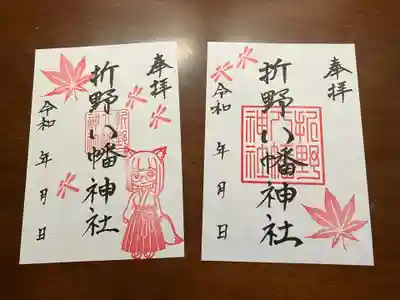 奉拝
折野八幡神社
令和 年 月 日
奉拝
折野八幡神社
折野
八幡
神社
令和 年 月 日